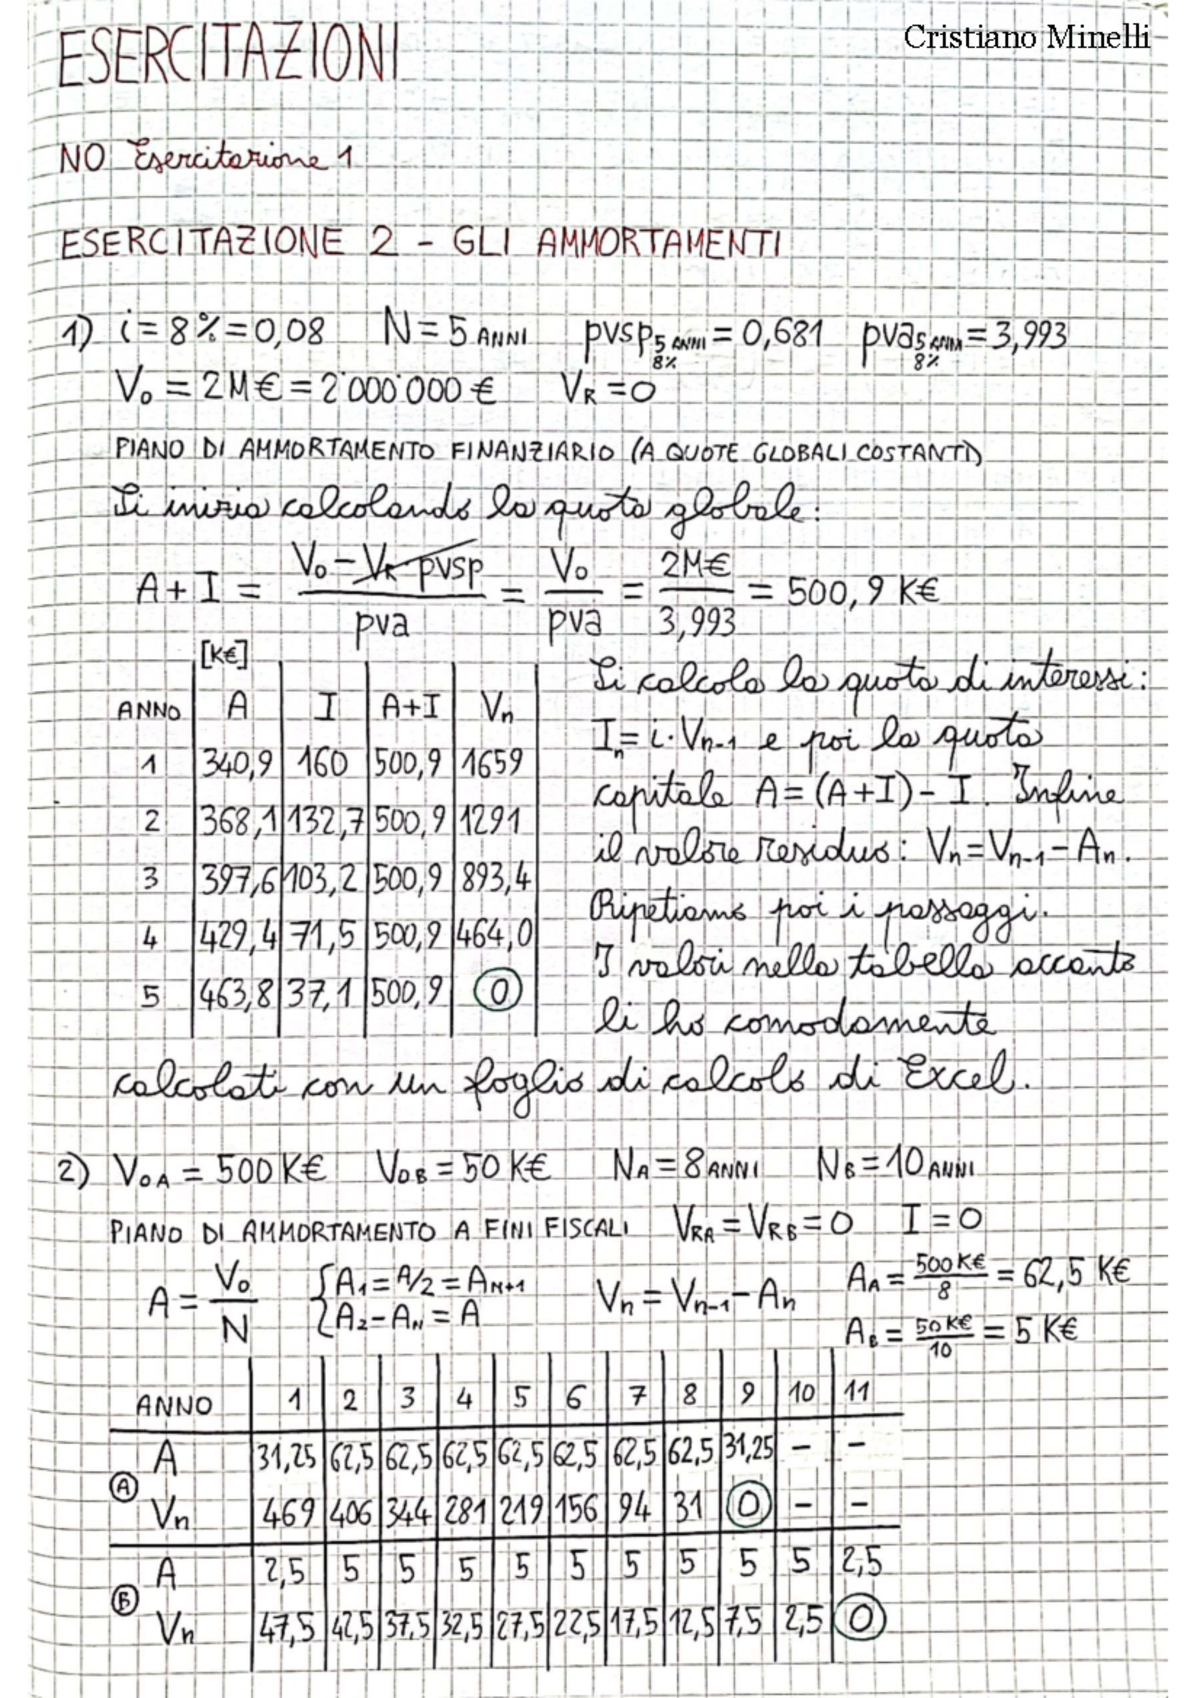 Cristiano Minelli
ESERCITAZIONI
NO Esercitazione 1
ESERCITAZIONE 2 - GLI AMMORTAMENTI
1) i = 8% = 0,08 N = 5 ANNI pvsp5 ANNI 8% = 0,681 pva5 ANNI 8% = 3,993
V0 = 2M€ = 2'000'000 € VR = 0
PIANO DI AMMORTAMENTO FINANZIARIO (A QUOTE GLOBALI COSTANTI)
Si inizia calcolando la quota globale:
A+I = (V0 - VR · pvsp)/pva = V0/pva = 2M€/3,993 = 500,9 K€
[K€]
ANNO A I A+I Vn
1 340,9 160 500,9 1659
2 368,1 132,7 500,9 1291
3 397,6 103,2 500,9 893,4
4 429,4 71,5 500,9 464,0
5 463,8 37,1 500,9 0
Si calcola la quota di interessi:
In = i·Vn-1 e poi la quota
capitale A = (A+I) - I. Infine
il valore residuo: Vn = Vn-1 - An.
Ripetiamo poi i passaggi.
I valori nella tabella accanto
li ho comodamente
calcolati con un foglio di calcolo di Excel.
2) V0A = 500 K€ V0B = 50 K€ NA = 8 ANNI NB = 10 ANNI
PIANO DI AMMORTAMENTO A FINI FISCALI VRA = VRB = 0 I = 0
A = V0/N { A1 = A/2 = AN+1 Vn = Vn-1 - An AA = 500 K€/8 = 62,5 K€
A2 - AN = A AB = 50 K€/10 = 5 K€
ANNO 1 2 3 4 5 6 7 8 9 10 11
A A 31,25 62,5 62,5 62,5 62,5 62,5 62,5 62,5 31,25 - -
Vn 469 406 344 281 219 156 94 31 0 - -
B A 2,5 5 5 5 5 5 5 5 5 5 2,5
Vn 47,5 42,5 37,5 32,5 27,5 22,5 17,5 12,5 7,5 2,5 0